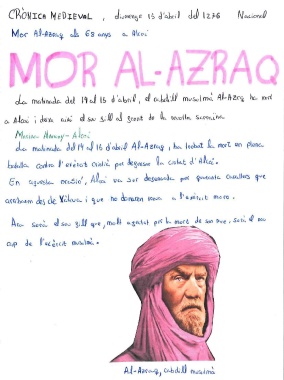 CRÒNICA MEDIEVAL, diumenge 15 d'abril del 1276 Nacional
Mor Al-Azraq als 68 anys a Alcoi
MOR AL-AZRAQ
La matinada del 14 al 15 d'abril, el cabdill musulmà Al-Azraq ha mort
a Alcoi i deixa així el seu fill al front de la revolta sarraïna
Alcoi
La matinada del 14 al 15 d'abril Al-Azraq, ha trobat la mort en plena
batalla contra l'exèrcit cristià per la ciutat d'Alcoi.
En aquesta ocasió, Alcoi va ser defensada per quaranta cavallers que
arribaren des de Xàtiva i que no donaren treva a l'exèrcit moro.
Ara serà el seu fill que, molt per la mort de son pare, serà el nou
cap de l'exèrcit musulmà.
Al-Azraq, cabdill musulmà